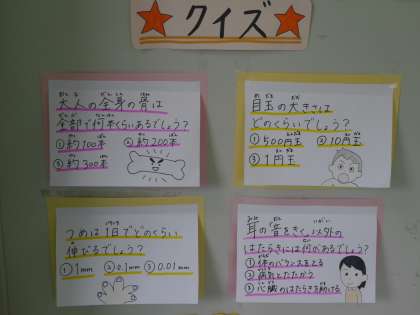 クイズ
大人の全身の骨は
全部で何本くらいあるでしょう？
①約100本 ②約200本
③約300本
目玉の大きさは
どのくらいでしょう？
①500円玉 ②10円玉
③1円玉
つめは1日でどのくらい
伸びるでしょう？
①1mm ②0.1mm ③0.01mm
耳の音をきく以外の
はたらきには何があるでしょう？
①体のバランスをとる
②病気とたたかう
③心臓のはたらきを助ける